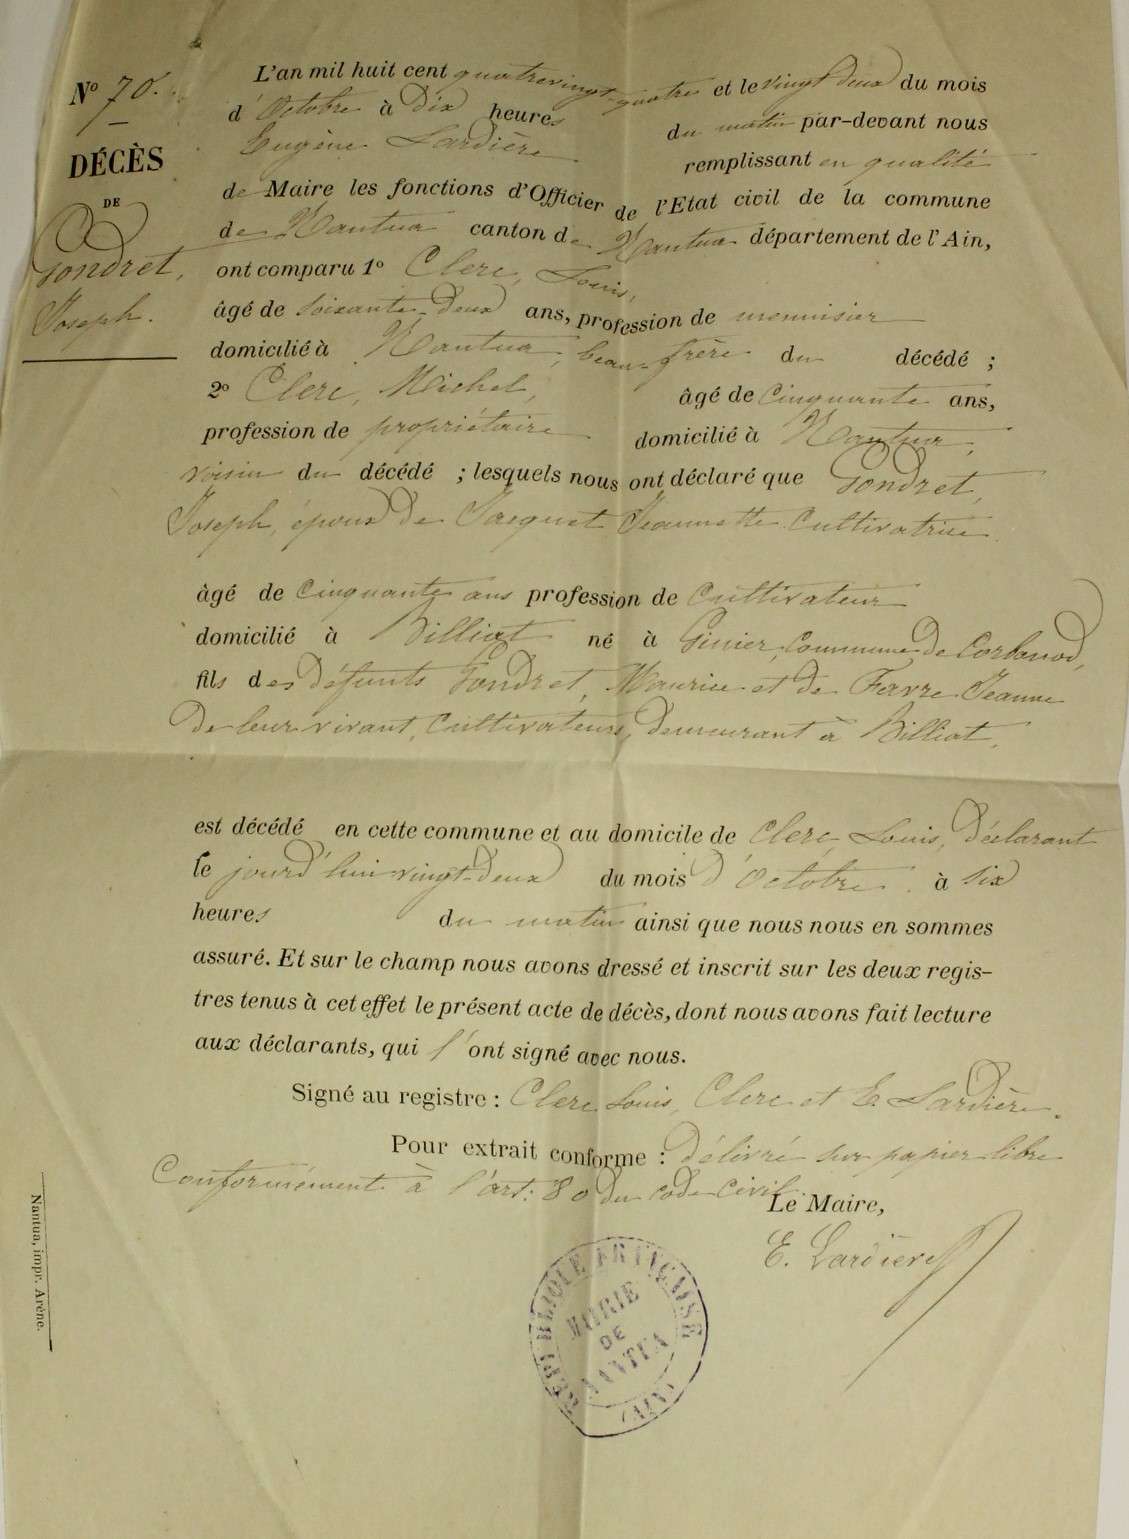 N° 70.
DÉCÈS
DE
Gondret,
Joseph.
L'an mil huit cent quatrevingt-quatre et le vingt deux du mois
d'Octobre à dix heures du matin par-devant nous
Eugène Lardière remplissant en qualité
de Maire les fonctions d'Officier de l'Etat civil de la commune
de Nantua canton de Nantua département de l'Ain,
ont comparu 1° Clerc, Louis,
âgé de soixante-deux ans, profession de menuisier
domicilié à Nantua, beau-frère du décédé ;
2° Clerc, Michel, âgé de cinquante ans,
profession de propriétaire domicilié à Nantua,
voisin du décédé ; lesquels nous ont déclaré que Gondret,
Joseph, époux de Jacquet Jeannette cultivatrice
âgé de cinquante ans profession de cultivateur
domicilié à Billiat né à Ginier, commune de Corbonod,
fils des défunts Gondret, Maurice et de Favre Jeanne
de leur vivant, cultivateurs, demeurant à Billiat,
est décédé en cette commune et au domicile de Clerc, Louis, déclarant
le jourd'hui vingt-deux du mois d'Octobre à six
heures du matin ainsi que nous nous en sommes
assuré. Et sur le champ nous avons dressé et inscrit sur les deux regis-
tres tenus à cet effet le présent acte de décès, dont nous avons fait lecture
aux déclarants, qui l'ont signé avec nous.
Signé au registre : Clerc Louis, Clerc et E. Lardière.
Pour extrait conforme : Délivré sur papier libre
Conformément à l'art. 80 du code civil.
Le Maire,
E. Lardière
RÉPUBLIQUE FRANÇAISE
MAIRIE
DE
NANTUA
(AIN)
Nantua, impr. Arène.